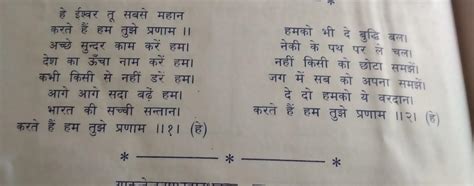 हे ईश्वर तू सबसे महान
करते हैं हम तुझे प्रणाम ।।
अच्छे सुन्दर काम करें हम।
देश का ऊँचा नाम करें हम।
कभी किसी से नहीं डरें हम।
आगे आगे सदा बढ़ें हम।
भारत की सच्ची सन्तान।
करते हैं हम तुझे प्रणाम ।।१। (हे)
हमको भी दे बुद्धि बल।
नेकी के पथ पर ले चल।
नहीं किसी को छोटा समझें।
जग में सब को अपना समझें।
दे दो हमको ये बरदान।
करते हैं हम तुझे प्रणाम ।।२। (हे)